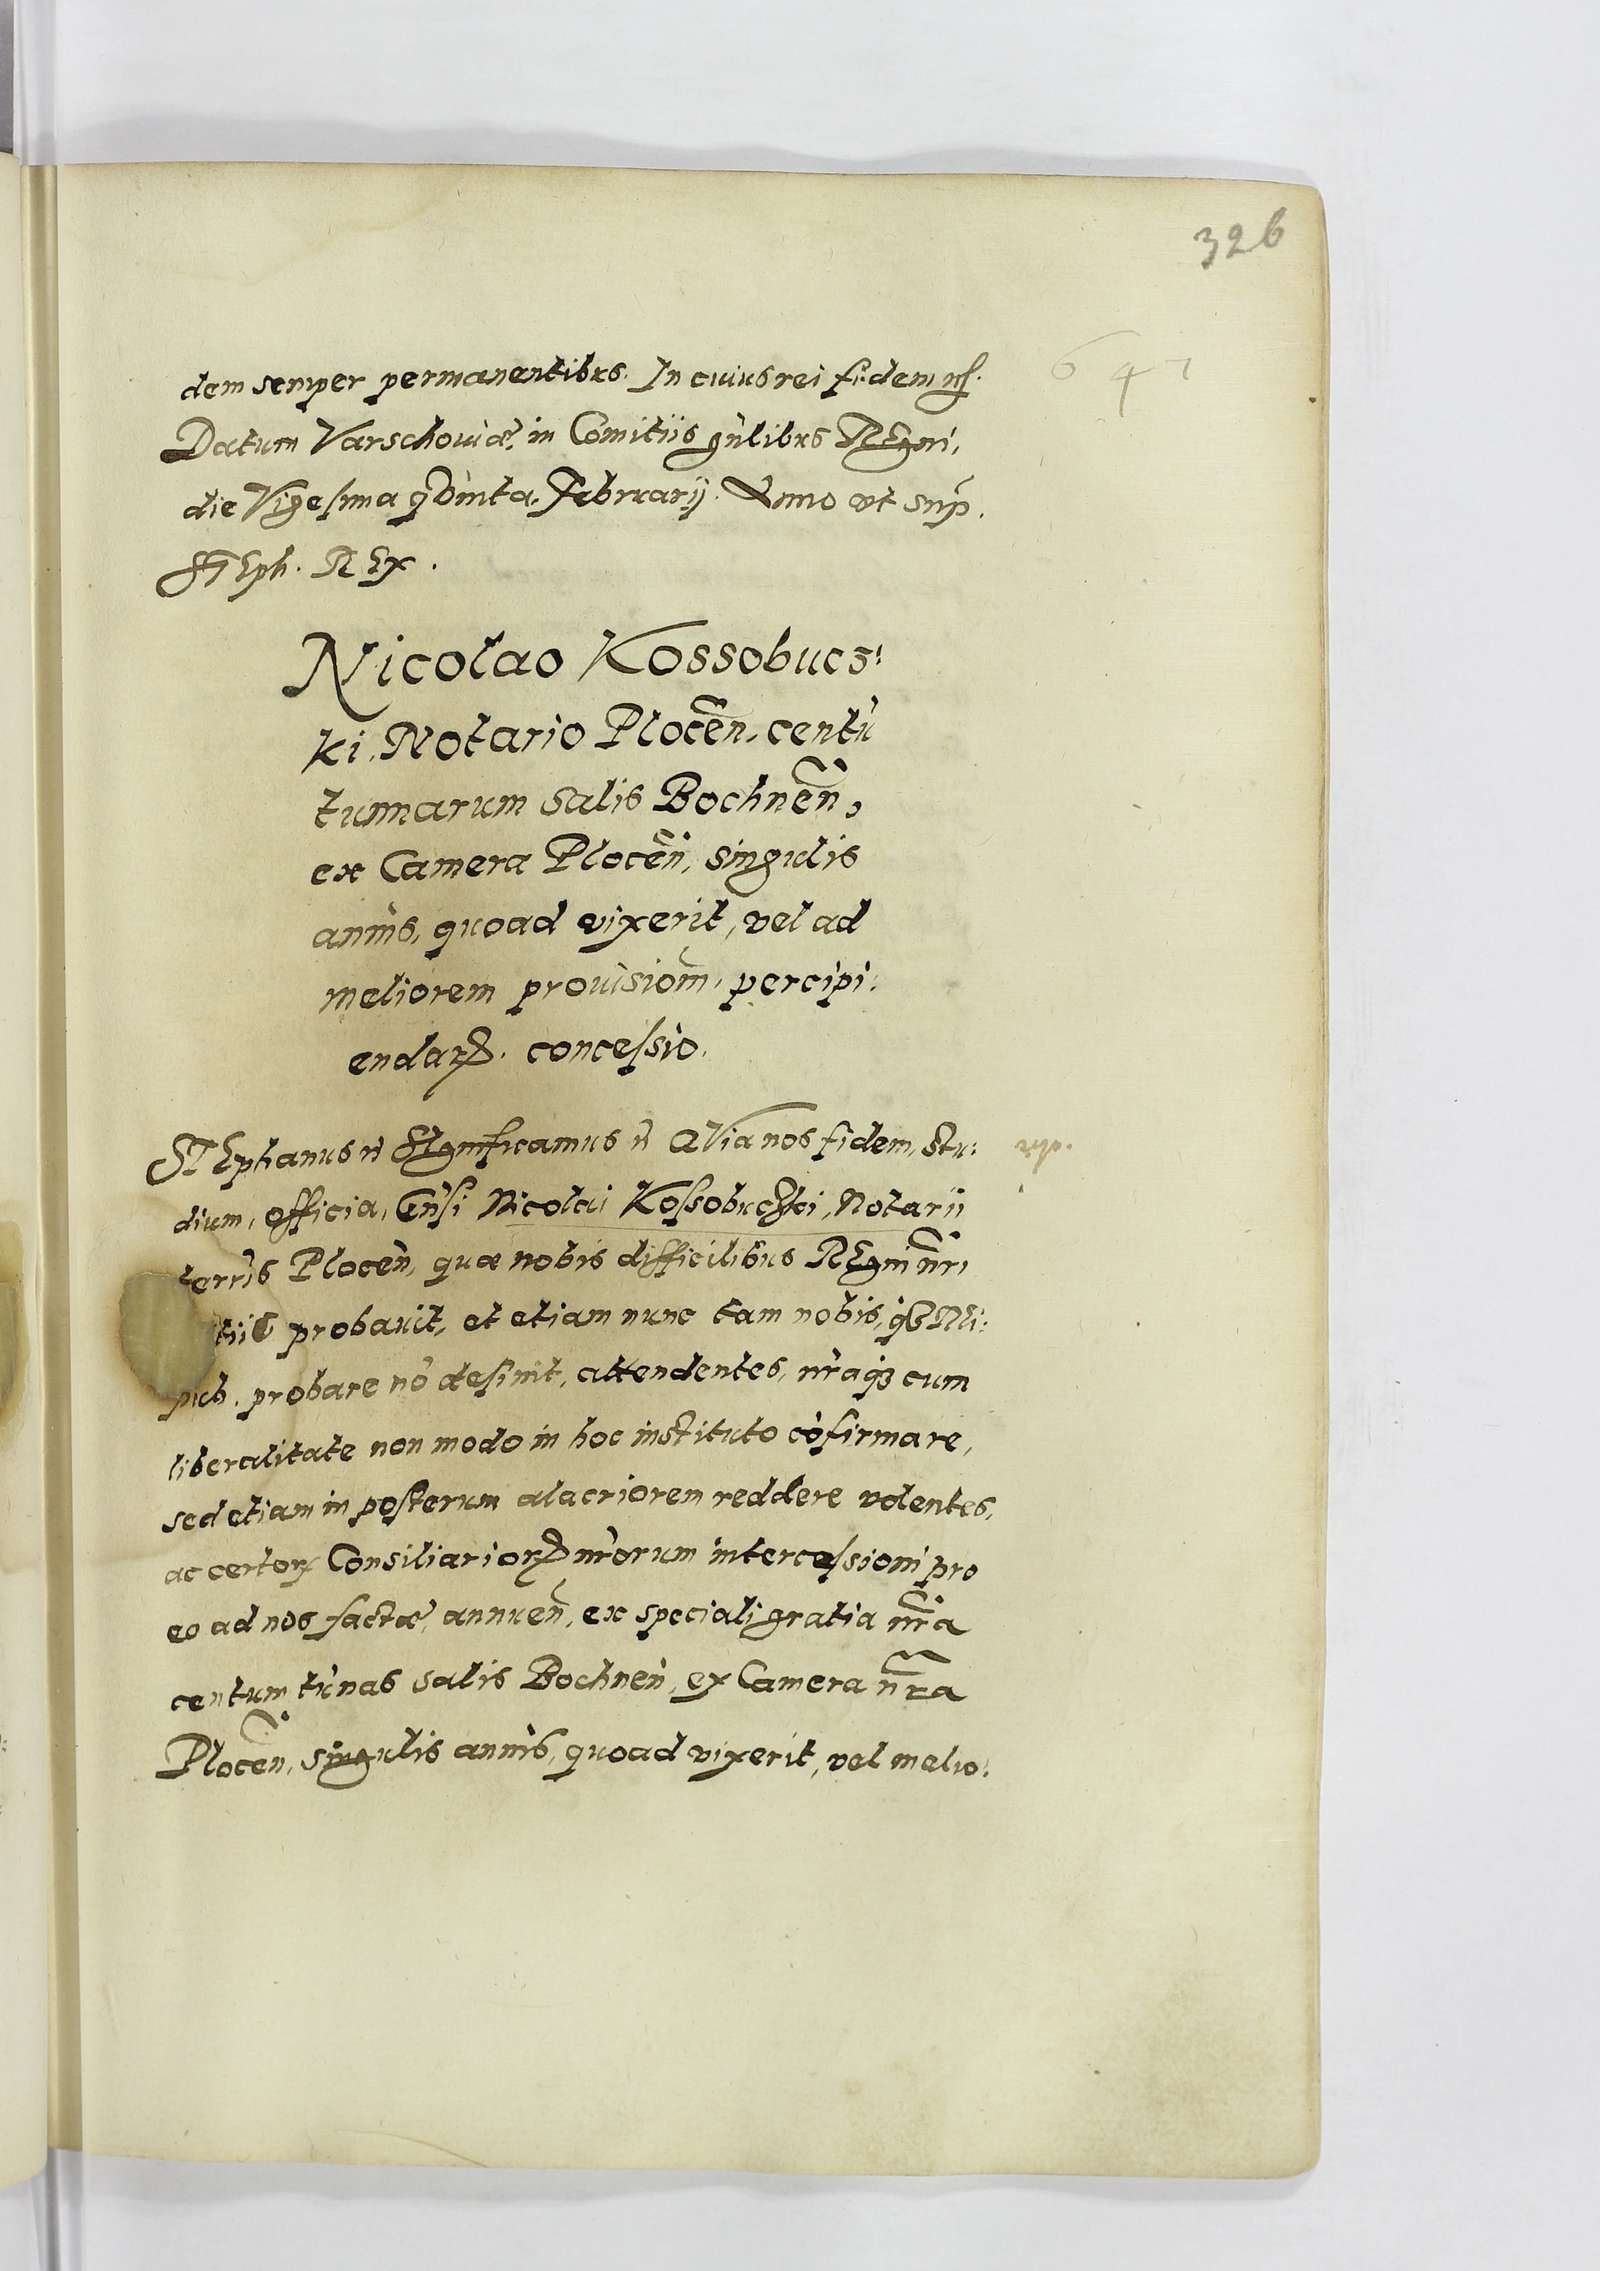 326
647
dem semper permanentibus. In cuius rei fidem etc.
Datum Varschouiæ, in Comitiis gn̄libus REgni,
die Vigesima qVinta, Februarij. Anno vt sup.
STEph. REx.
Nicolao Kossobucs:
ki, Notario Plocen̄, centū
tunnarum salis Bochnen̄,
ex Camera Plocen̄, singulis
annis, quoad vixerit, vel ad
meliorem prouisiom̄, percipi:
endarꝝ. concessio.
STEphanus etc SIgnificamus etc QVia nos fidem, stu:
dium, officia, Gn̄si Nicolai Kossobucski, Notarii
terrīs Plocen̄, quæ nobis difficilibus REgni nr̄i
tiis probauit, et etiam nunc tam nobis, qꝫ REi:
pub. probare nō desinit, attendentes, nr̄aqꝫ cum
liberalitate non modo in hoc instituto cōfirmare,
sed etiam in posterum alacriorem reddere volentes,
ac certorꝝ Consiliariorꝝ nr̄orum intercessioni pro
eo ad nos factæ, annuen̄, ex speciali gratia nr̄a
centum tūnas salis Bochnen̄, ex Camera nr̄a
Plocen̄, singulis annis, quoad vixerit, vel melio: